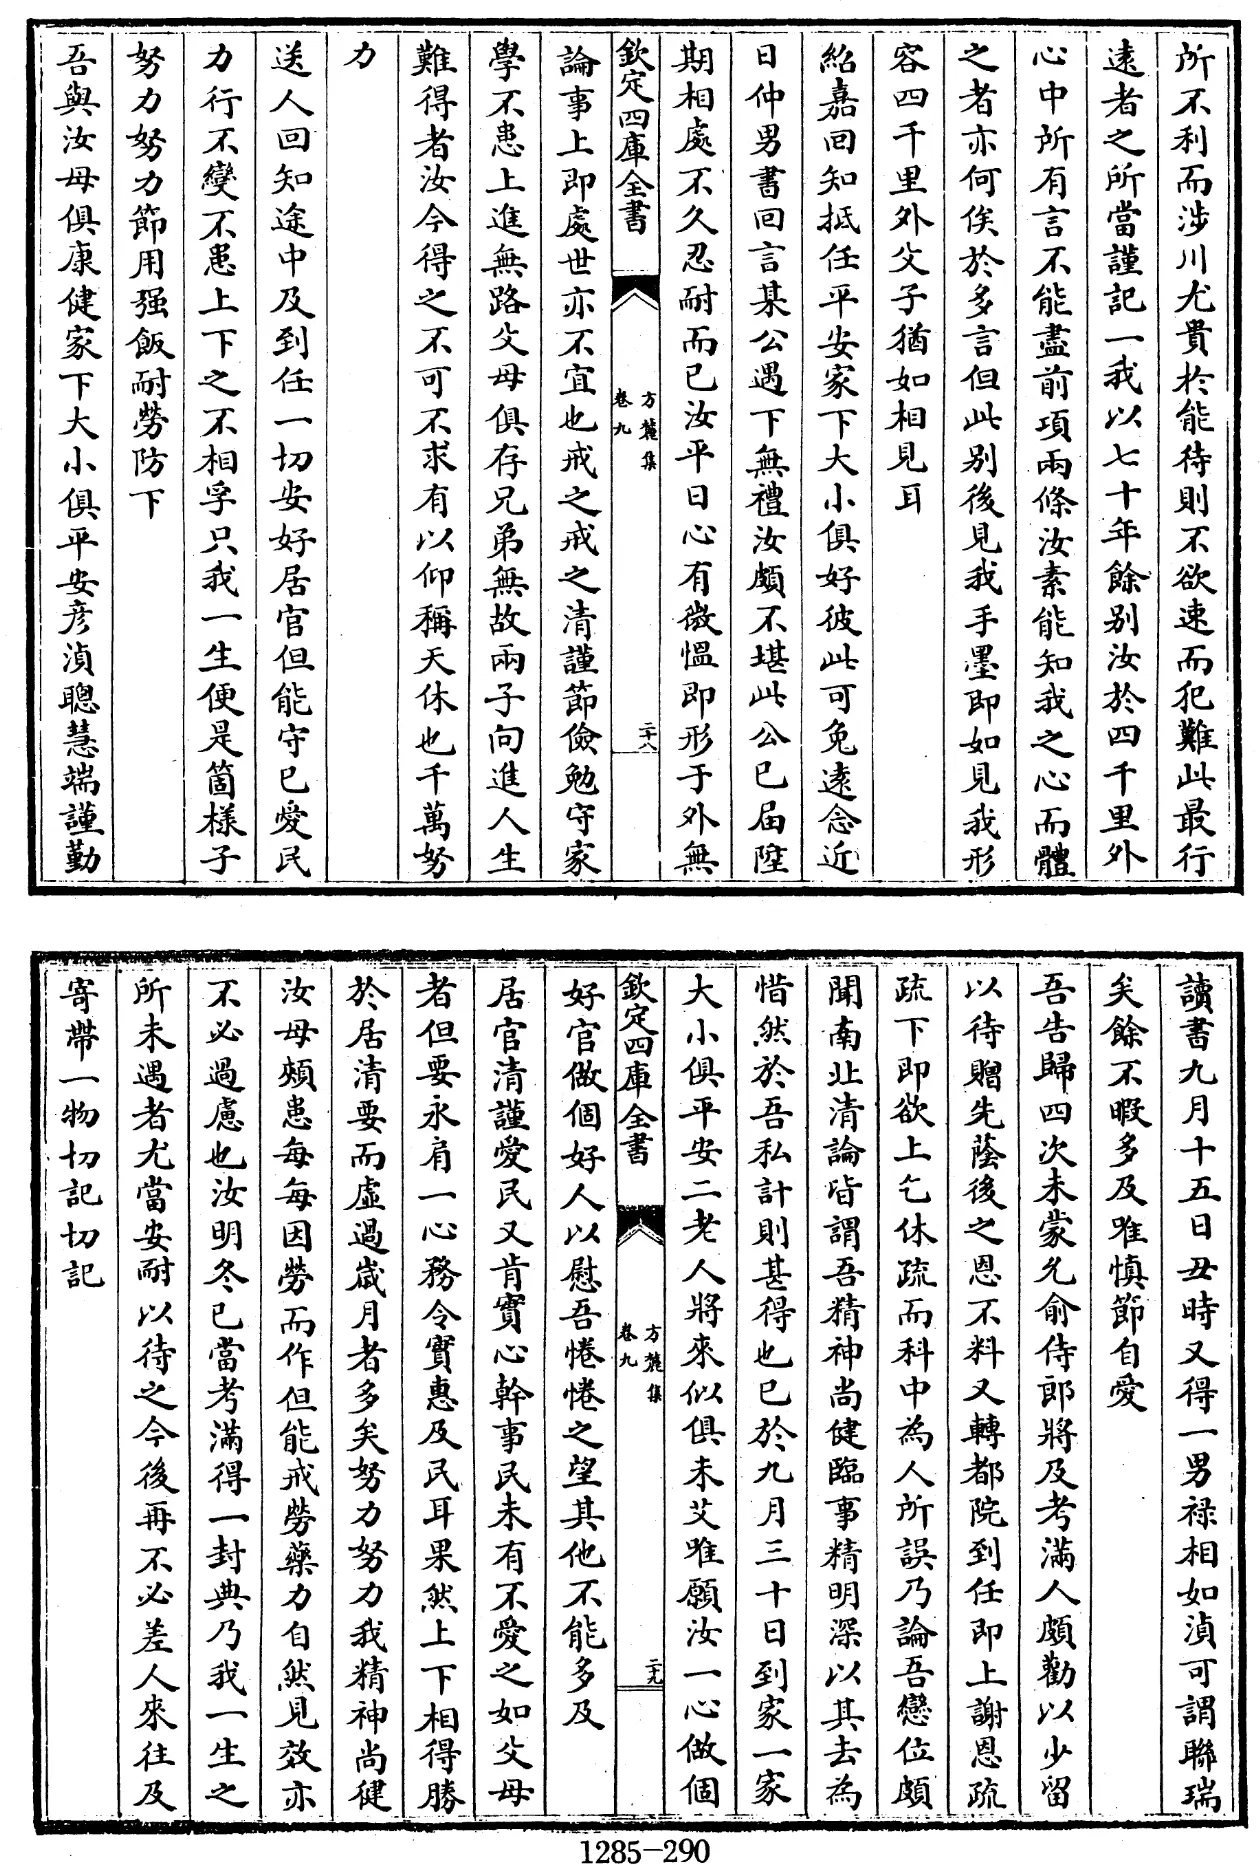 所不利而涉川尤貴於能待則不欲速而犯難此最行
遠者之所當謹記一我以七十年餘别汝於四千里外
心中所有言不能盡前項兩條汝素能知我之心而體
之者亦何俟於多言但此别後見我手墨即如見我形
容四千里外父子猶如相見耳
紹嘉回知抵任平安家下大小俱好彼此可免遠念近
日仲男書回言某公遇下無禮汝頗不堪此公已届陞
期相處不久忍耐而已汝平日心有微愠即形于外無
欽定四庫全書
方麓集
卷九
二十八
論事上即處世亦不宜也戒之戒之清謹節儉勉守家
學不患上進無路父母俱存兄弟無故兩子向進人生
難得者汝今得之不可不求有以仰稱天休也千萬努
力
送人回知途中及到任一切安好居官但能守己愛民
力行不變不患上下之不相孚只我一生便是箇様子
努力努力節用强飯耐勞防下
吾與汝母俱康健家下大小俱平安彦湞聰慧端謹勤
讀書九月十五日丑時又得一男禄相如湞可謂聯瑞
矣餘不暇多及唯慎節自愛
吾告歸四次未蒙允俞侍郎將及考滿人頗勸以少留
以待贈先蔭後之恩不料又轉都院到任即上謝恩疏
疏下即欲上乞休疏而科中為人所誤乃論吾戀位頗
聞南北清論皆謂吾精神尚健臨事精明深以其去為
惜然於吾私計則甚得也已於九月三十日到家一家
大小俱平安二老人將來似俱未艾唯願汝一心做個
欽定四庫全書
方麓集
卷九
二十九
好官做個好人以慰吾惓惓之望其他不能多及
居官清謹愛民又肯實心幹事民未有不愛之如父母
者但要永肩一心務令實惠及民耳果然上下相得勝
於居清要而虚過歲月者多矣努力努力我精神尚健
汝母頗患每每因勞而作但能戒勞藥力自然見效亦
不必過慮也汝明冬已當考滿得一封典乃我一生之
所未遇者尤當安耐以待之今後再不必差人來往及
寄帶一物切記切記
1285-290